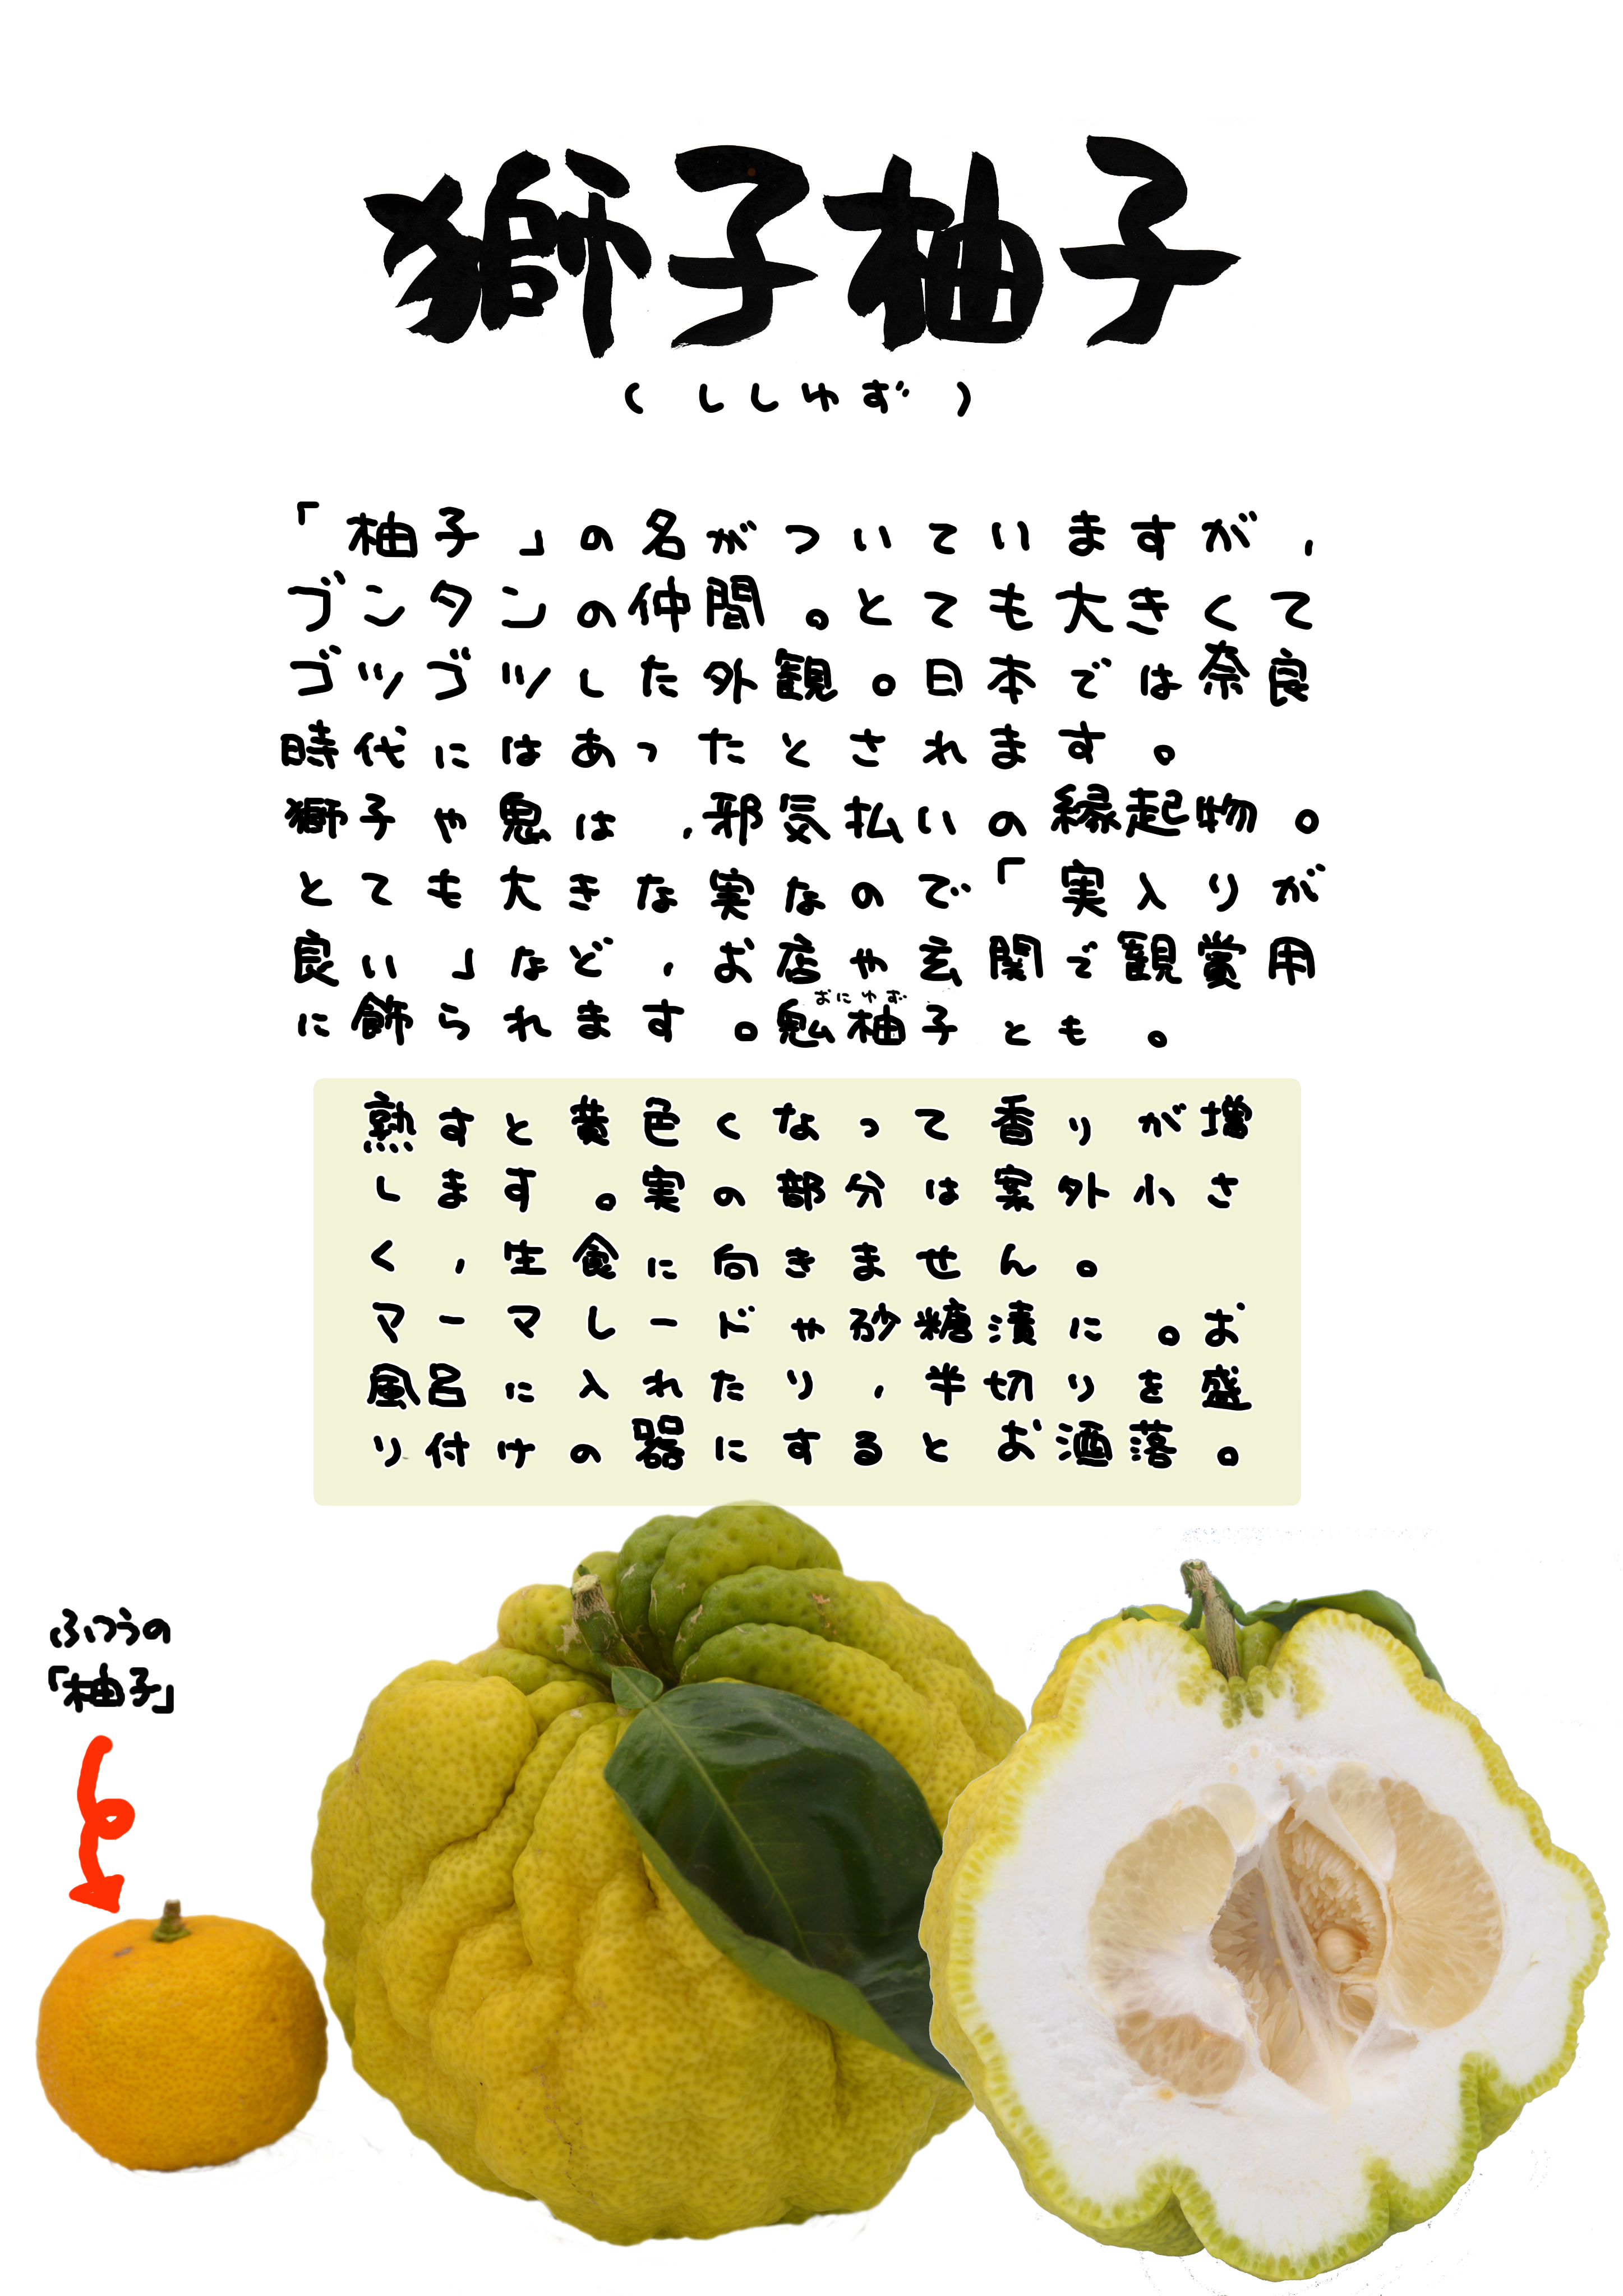 獅子柚子
(ししゆず)
「柚子」の名がついていますが,
ブンタンの仲間。とても大きくて
ゴツゴツした外観。日本では奈良
時代にはあったとされます。
獅子や鬼は,邪気払いの縁起物。
とても大きな実なので「実入りが
良い」など,お店や玄関で観賞用
に飾られます。鬼柚子とも。
おにゆず
熟すと黄色くなって香りが増
します。実の部分は案外小さ
く,生食に向きません。
マーマレードや砂糖漬に。お
風呂に入れたり,半切りを盛
り付けの器にするとお洒落。
ふつうの
「柚子」